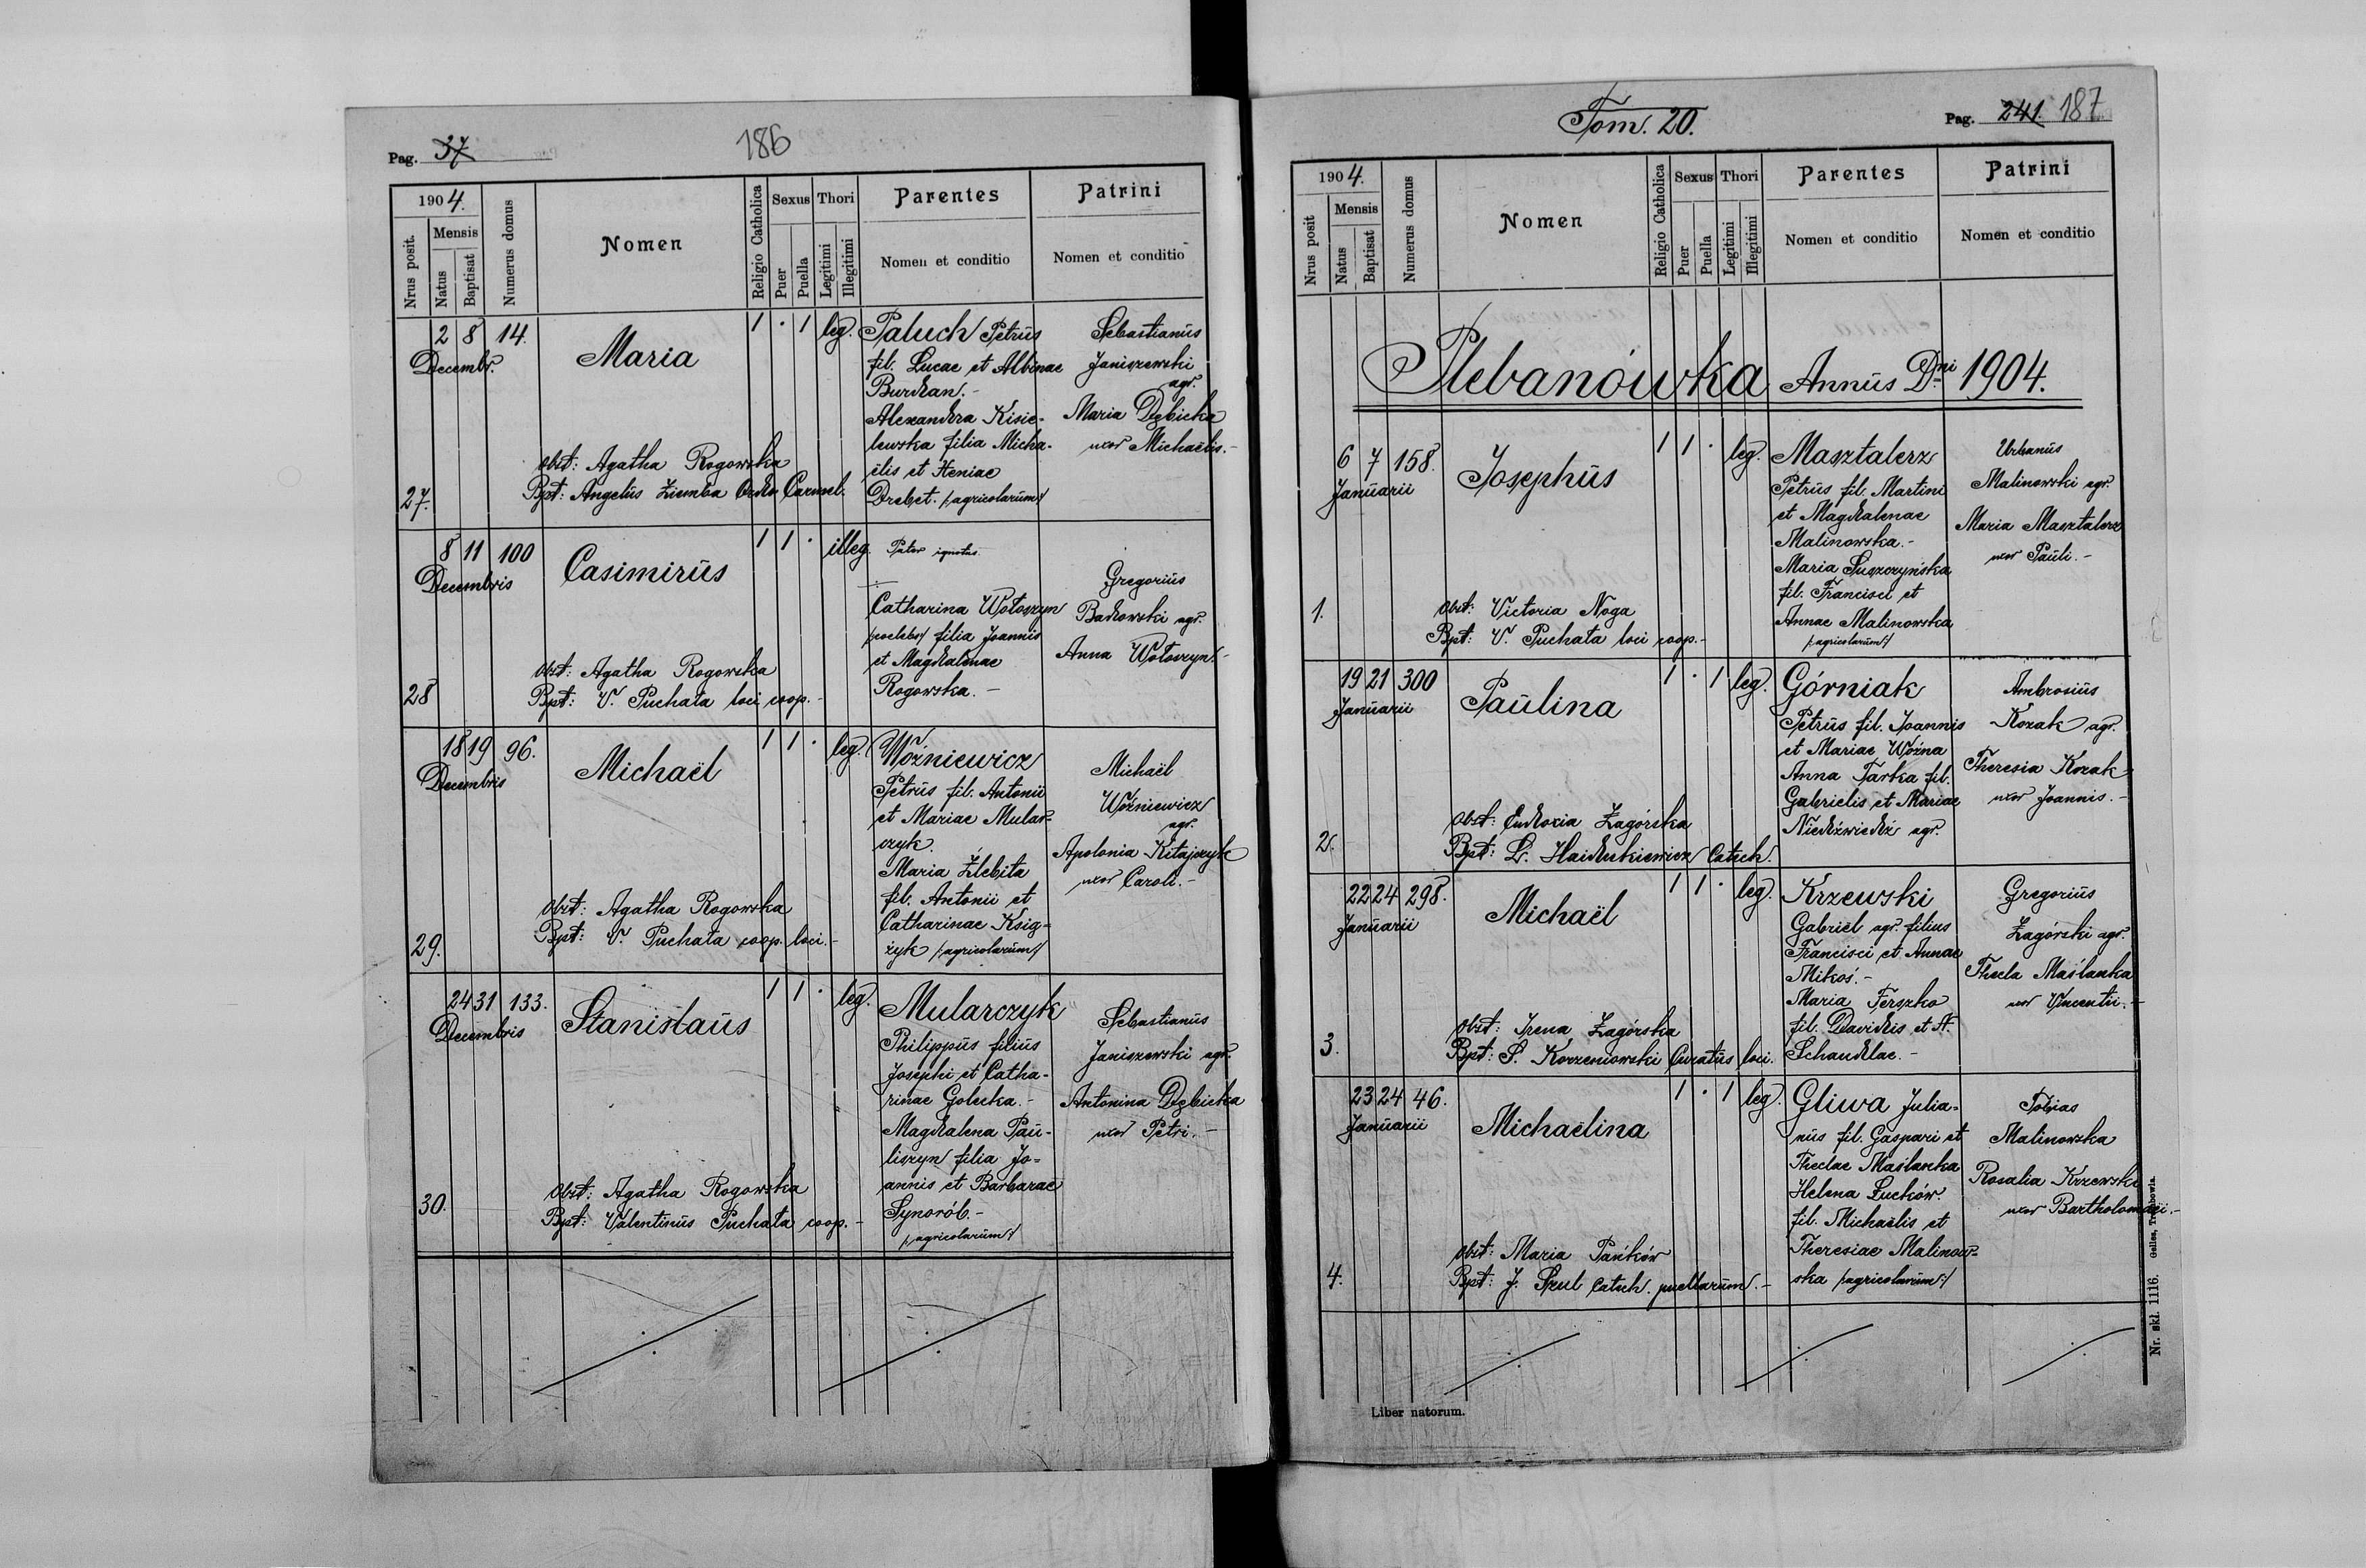 Pag. 37
186
1904.
Nrus posit.
Mensis
Natus
Baptisat
Numerus domus
Nomen
Religio Catholica
Sexus
Puer
Puella
Thori
Legitimi
Illegitimi
Parentes
Nomen et conditio
Patrini
Nomen et conditio
27.
2 8 14.
Decembr.
Maria
obst: Agatha Rogowska
Bpt: Angelus Ziemba Ord. Carmel.
1 . 1 leg.
Paluch Petrus
fil. Lucae et Albinae
Burdan.-
Alexandra Kisie-
lewska filia Micha-
ëlis et Heniae
Drebet. /:agricolarum:/
Sebastianus
Janiszewski
agr.
Maria Dębicka
uxor Michaëlis.-
28
8 11 100
Decembris
Casimirus
obst: Agatha Rogowska
Bpt: V. Puchata loci coop.-
1 1 . illeg.
Pater ignotus
Catharina Wołoszyn
/coelebs/ filia Joannis
et Magdalenae
Rogowska.-
Gregorius
Badowski agr.
Anna Wołoszyn.-
29.
18 19 96.
Decembris
Michaël
obst: Agatha Rogowska
Bpt: V. Puchata coop. loci.-
1 1 . leg.
Woźniewicz
Petrus fil. Antonii
et Mariae Mular-
czyk.
Maria Zlebita
fil. Antonii et
Catharinae Książ-
żyk /:agricolarum:/
Michaël
Woźniewicz
agr.
Apolonia Kitajczyk
uxor Caroli.-
30.
24 31 133.
Decembris
Stanislaus
obst: Agatha Rogowska
Bpt: Valentinus Puchata coop.-
1 1 . leg.
Mularczyk
Philippus filius
Josephi et Catha-
rinae Golecka.-
Magdalena Pau-
liszyn filia Jo-
annis et Barbarae
Synorób.-
/:agricolarum:/
Sebastianus
Janiszewski agr.
Antonina Dębicka
uxor Petri.-
Tom. 20.
Pag. 241. 187
1904.
Nrus posit
Mensis
Natus
Baptisat
Numerus domus
Nomen
Religio Catholica
Sexus
Puer
Puella
Thori
Legitimi
Illegitimi
Parentes
Nomen et conditio
Patrini
Nomen et conditio
Plebanówka Annus Dni 1904.
1.
6 7 158.
Januarii
Josephus
obst: Victoria Noga
Bpt: V. Puchata loci coop.-
1 1 . leg.
Masztalerz
Petrus fil. Martini
et Magdalenae
Malinowska.-
Maria Suszczyńska
fil. Francisci et
Annae Malinowska
/:agricolarum:/
Urbanus
Malinowski agr.
Maria Masztalerz
uxor Pauli.-
2.
19 21 300
Januarii
Paulina
obst: Eudoxia Zagórska
Bpt: L. Haidukiewicz Catech.
1 . 1 leg.
Górniak
Petrus fil. Joannis
et Mariae Woźna
Anna Tarka fil.
Gabrielis et Mariae
Niedźwiedź agr.
Ambrosius
Kozak agr.
Theresia Kozak
uxor Joannis.-
3.
22 24 298.
Januarii
Michaël
obst: Irena Zagórska
Bpt: S. Korzeniowski Curatus loci.
1 1 . leg.
Krzewski
Gabriel agr. filius
Francisci et Annae
Mikoś.-
Maria Ferszko
fil. Davidis et A.
Schaudlae.-
Gregorius
Zagórski agr.
Thecla Maślanka
uxor Vincentii.-
4.
23 24 46.
Januarii
Michaëlina
obst: Maria Pańków
Bpt: J. Szul Catech. puellarum.-
1 . 1 leg.
Gliwa Julia-
nus fil. Gaspari et
Theclae Maślanka
Helena Luckόw.
fil. Michaëlis et
Theresiae Malinow-
ska /:agricolarum:/
Tobias
Malinowska
Rosalia Krzewska
uxor Bartholomaei.-
Liber natorum.
Nr. skł. 1116. Gelles, Trembowla.